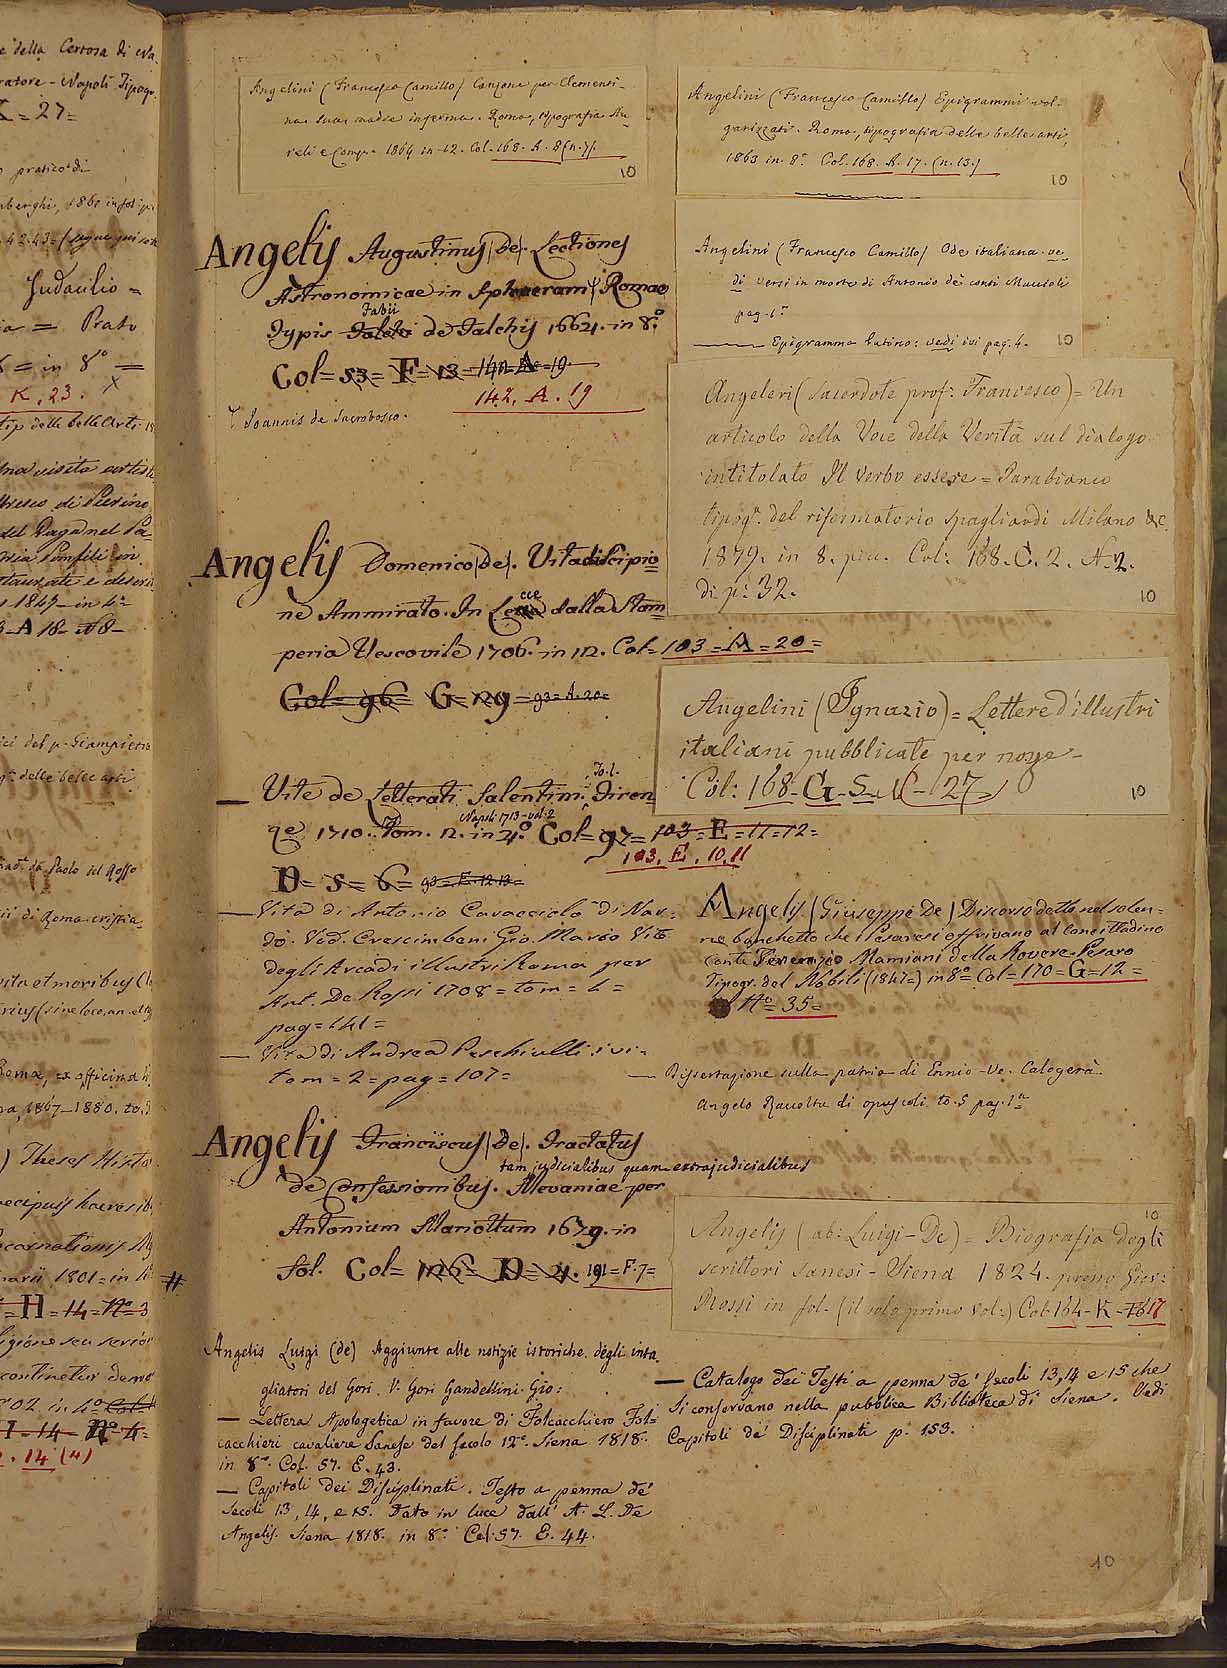 e della Certosa di Na
ratore - Napoli Tipogr.
= 27 =
o pratico di
nberghi, 1860 in fol.
42.43 = (segue qui sotto
Judaulio =
ia = Prato
= in 8° =
K. 23. X
tip delle belle Arti
na visita artisti
fresco di Pierino
del Vaga nel Pa=
ria Pamfili in
staurate e descri
1849 - in 4°
3 - A 18 - N 8 -
ici del p. Giampietro
delle belle arti
da Paolo del Rosso
ii di Roma cristia
vita et moribus Cle
rius (sine loco, an. et typ
Romae, ex officina
1867-1880. to.
) Theses Histo
aecipuis haeresib
ncarnationis
1801 = in
= H = 14 = N° 3
ligione seu serio
continetur demo
in 4° Col =
I = 14 - N° 4 =
. 14 (4)
Angelini (Francesco Camillo) Canzone per Clementi-
na sua madre inferma. Roma, tipografia Au-
reli e Comp. 1864 in-12. Col. 168. A. 8 (n. 7).
10
Angelis Augustinus (De). Lectiones
Astronomicae in Sphaeram † Romae
Fabii
Typis de Falchis 1664. in 8°.
Col = 53 = F = 13 = 142 = A = 19.
142. A. 19
† Joannis de Sacrobosco.
Angelis Domenico (de). Vita di Scipio=
cce
ne Ammirato. In Lecce dalla Stam
peria Vescovile 1706. in 12. Col = 103 = A = 20 =
Col = 96 = G = 129 = 93 = A. 20 =
To. 1.
— Vite de Letterati Salentini. Firen
Napoli 1713 - vol. 2
ze 1710. Tom. 12. in 4°. Col = 97 = 103 = E = 11 = 12 =
103. E. 10. 11
D = 5 = 6 = 93 = E. 12. 13 =
— Vita di Antonio Caracciolo di Nar=
dò. Ved. Crescimbeni Gio. Mario Vite
degli Arcadi illustri Roma per
Ant. De Rossi 1708 = tom = 1 =
pag = 141 =
— Vita di Andrea Peschiulli ivi =
tom = 2 = pag = 107 =
Angelis Franciscus (De). Tractatus
tam judicialibus quam extrajudicialibus
de Confessionibus. Mevaniae per
Antonium Mariottum 1679. in
# fol. Col = 126 = D = 21. 191 = F. 7 =
Angelis Luigi (de) Aggiunte alle notizie istoriche degli inta
gliatori del Gori. V. Gori Gandellini Gio:
— Lettera Apologetica in favore di Folcacchiero Fol=
cacchieri cavaliere Sanese del secolo 12°. Siena 1818.
in 8°. Col. 57. E. 43.
— Capitoli dei Disciplinati. Testo a penna de'
Secoli 13, 14, e 15. Dato in luce dall' A. L. De
Angelis. Siena 1818. in 8°. Col. 57. E. 44.
Angelini (Francesco Camillo) Epigrammi vol-
garizzati. Roma, tipografia delle belle arti,
1863 in 8°. Col. 168. A. 17. (n. 13.)
10
Angelini (Francesco Camillo) Ode italiana. ve-
di versi in morte di Antonio de' conti Muccioli
pag. 1ª
— Epigramma latino: vedi ivi pag. 4.
10
Angeleri (sacerdote prof. Francesco) = Un
articolo della Voce della Verità sul dialogo
intitolato Il Verbo essere = Parabiano
tipogª. del riformatorio Spagliardi Milano &c
1879. in 8. picc. Col: 168. C. 2. N. 2.
di p: 32.
10
Angelini (Ignazio) = Lettere d'illustri
italiani pubblicate per nozze -
Col: 168 - G - 5 - (- 27)
10
Angelis (Giuseppe De) Discorso detto nel solen=
ne banchetto che i Pesaresi offrivano al Concittadino
Conte Terenzio Mamiani della Rovere. Pesaro
Tipogr. del Nobili (1847=) in 8° = Col = 170 = G = 12 =
N° = 35 =
— Dissertazione sulla patria di Ennio - Ve. Calogerà
Angelo Raccolta di opuscoli to. 5 pag. 1ª
10
Angelis (ab: Luigi - De) = Biografia degli
scrittori sanesi - Siena 1824. presso Giov:
Rossi in fol. (il solo primo vol:) Col. 164 - K - 17
— Catalogo dei Testi a penna de' secoli 13, 14 e 15 che
si conservano nella pubblica Biblioteca di Siena. Vedi
Capitoli de' Disciplinati p. 153.
10